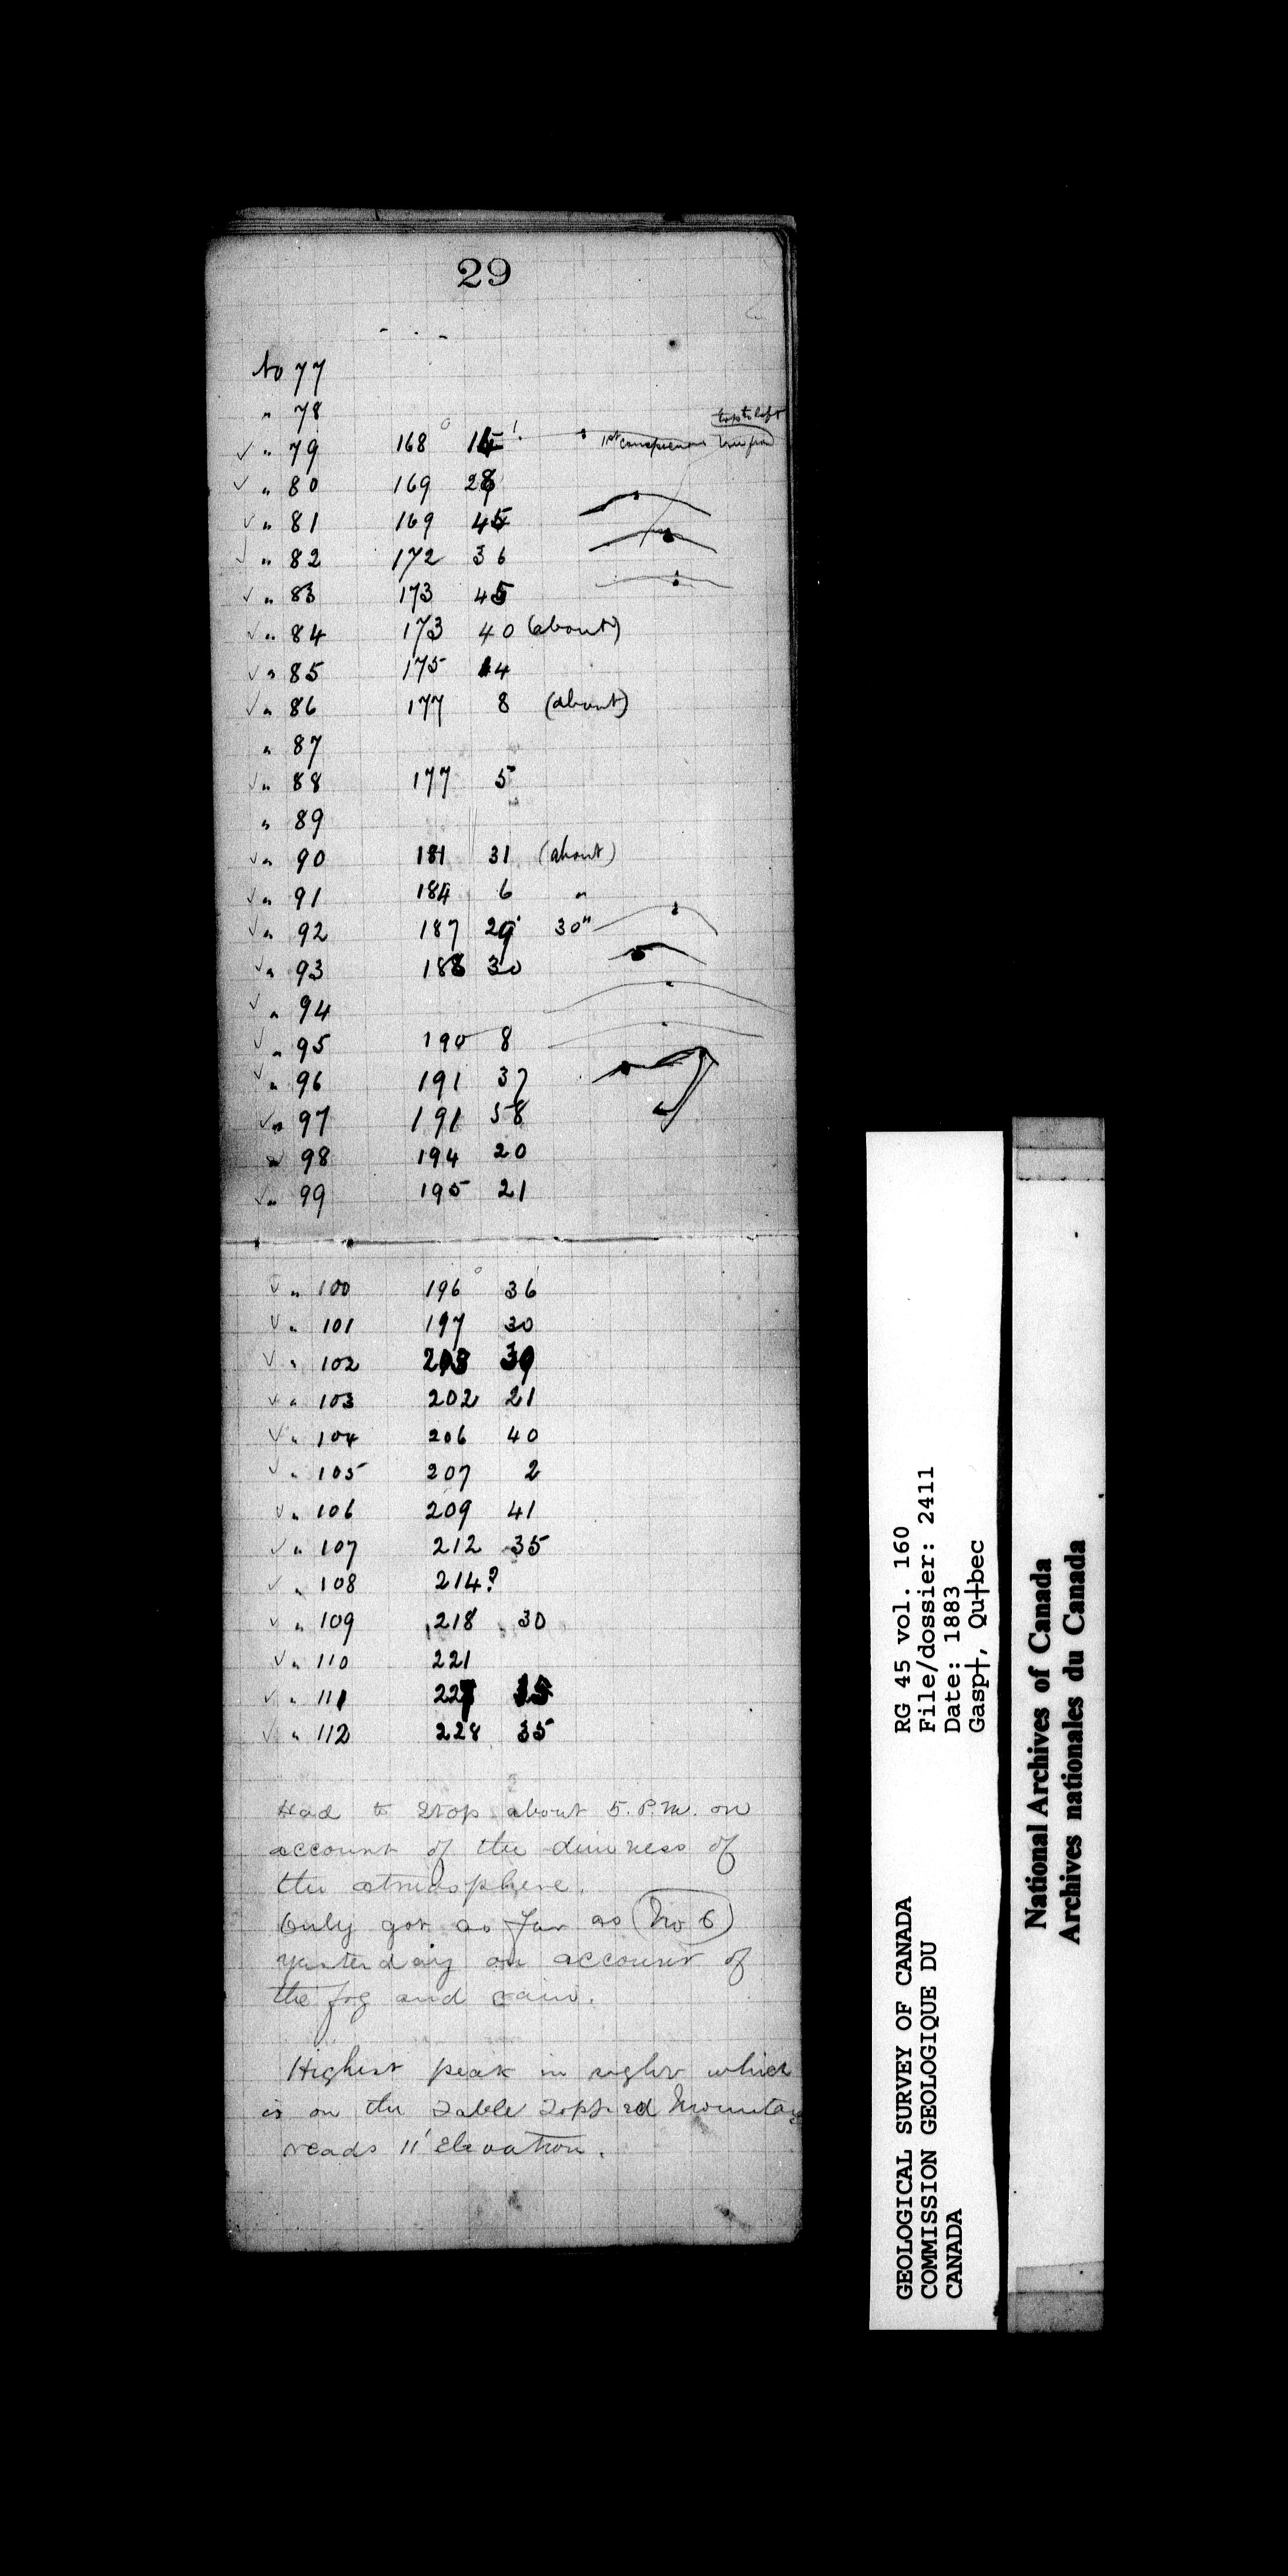 29
No 77
" 78
top to left
✓ " 79 168° 15' 1st conspicuous
✓ " 80 169 28
✓ " 81 169 45
✓ " 82 172 36
✓ " 83 173 45
✓ " 84 173 40 (about)
✓ " 85 175 14
✓ " 86 177 8 (about)
" 87
✓ " 88 177 5
" 89
✓ " 90 181 31 (about)
✓ " 91 184 6 "
✓ " 92 187 29' 30"
✓ " 93 188 30
✓ " 94
✓ " 95 190 8
✓ " 96 191 37
✓ " 97 191 58
✓ " 98 194 20
✓ " 99 195 21
✓ " 100 196° 36
✓ " 101 197 30
✓ " 102
✓ " 103 202 21
✓ " 104 206 40
✓ " 105 207 2
✓ " 106 209 41
✓ " 107 212 35
✓ " 108 214?
✓ " 109 218 30
✓ " 110 221
✓ " 111
✓ " 112 228 35
Had to stop about 5. P.M. on
account of the dimness of
the atmosphere.
Only got as far as No 6
yesterday on account of
the fog and rain.
Highest peak in sight which
is on the Table Topped Mountain
reads 11' Elevation.
RG 45 vol. 160
File/dossier: 2411
Date: 1883
Gasp†, Qu†bec
GEOLOGICAL SURVEY OF CANADA
COMMISSION GEOLOGIQUE DU
CANADA
National Archives of Canada
Archives nationales du Canada